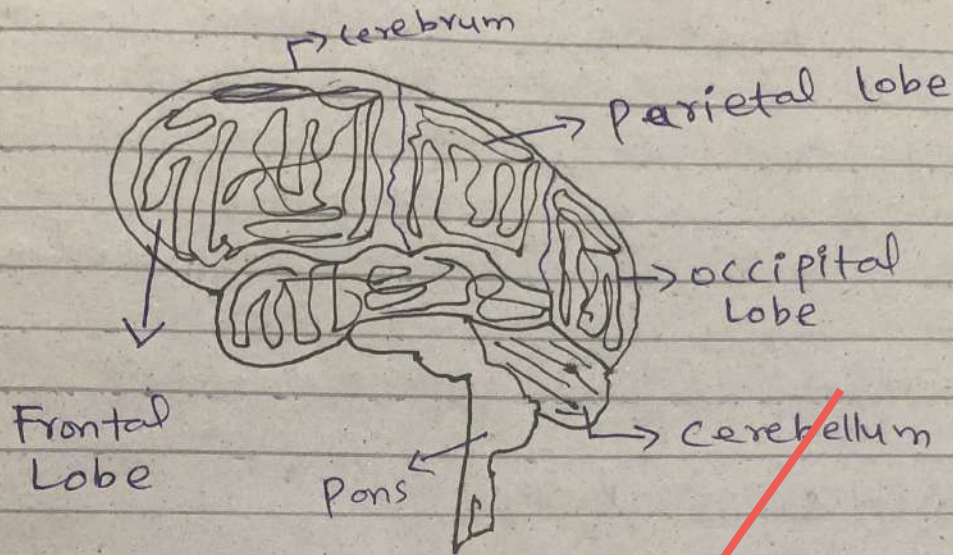 cerebrum
parietal lobe
occipital
Lobe
cerebellum
Frontal
Lobe
Pons